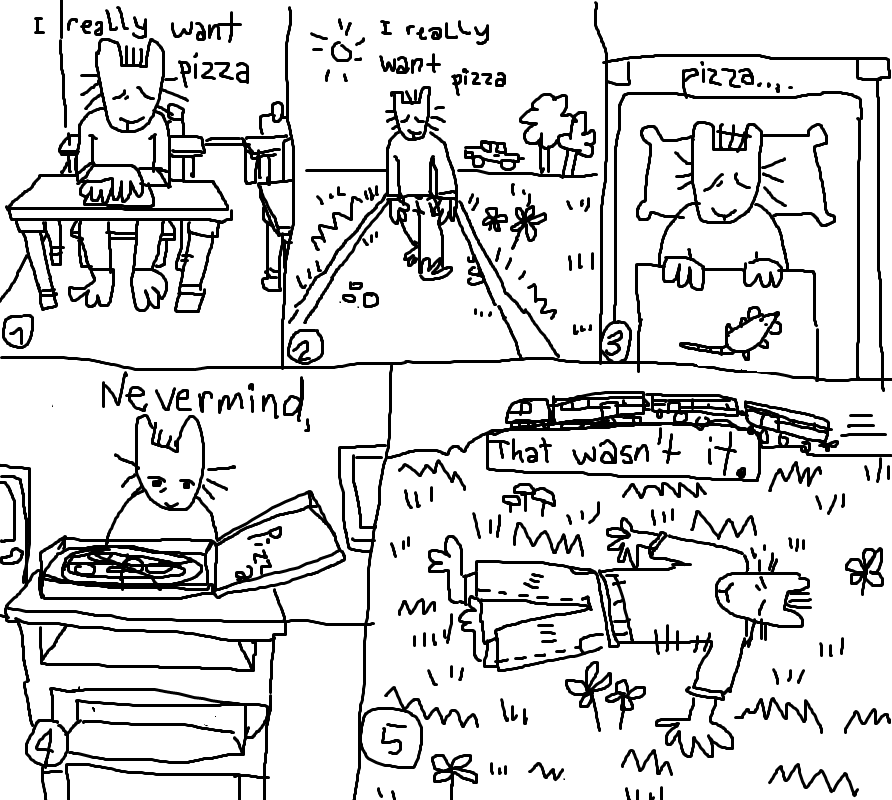 I really want
pizza
1
I really
want pizza
2
pizza...
3
Nevermind,
pizza
4
That wasn't it.
5